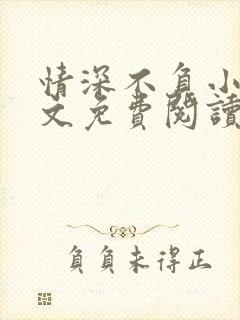 情深不負小
文免費閱讀
負負未得正